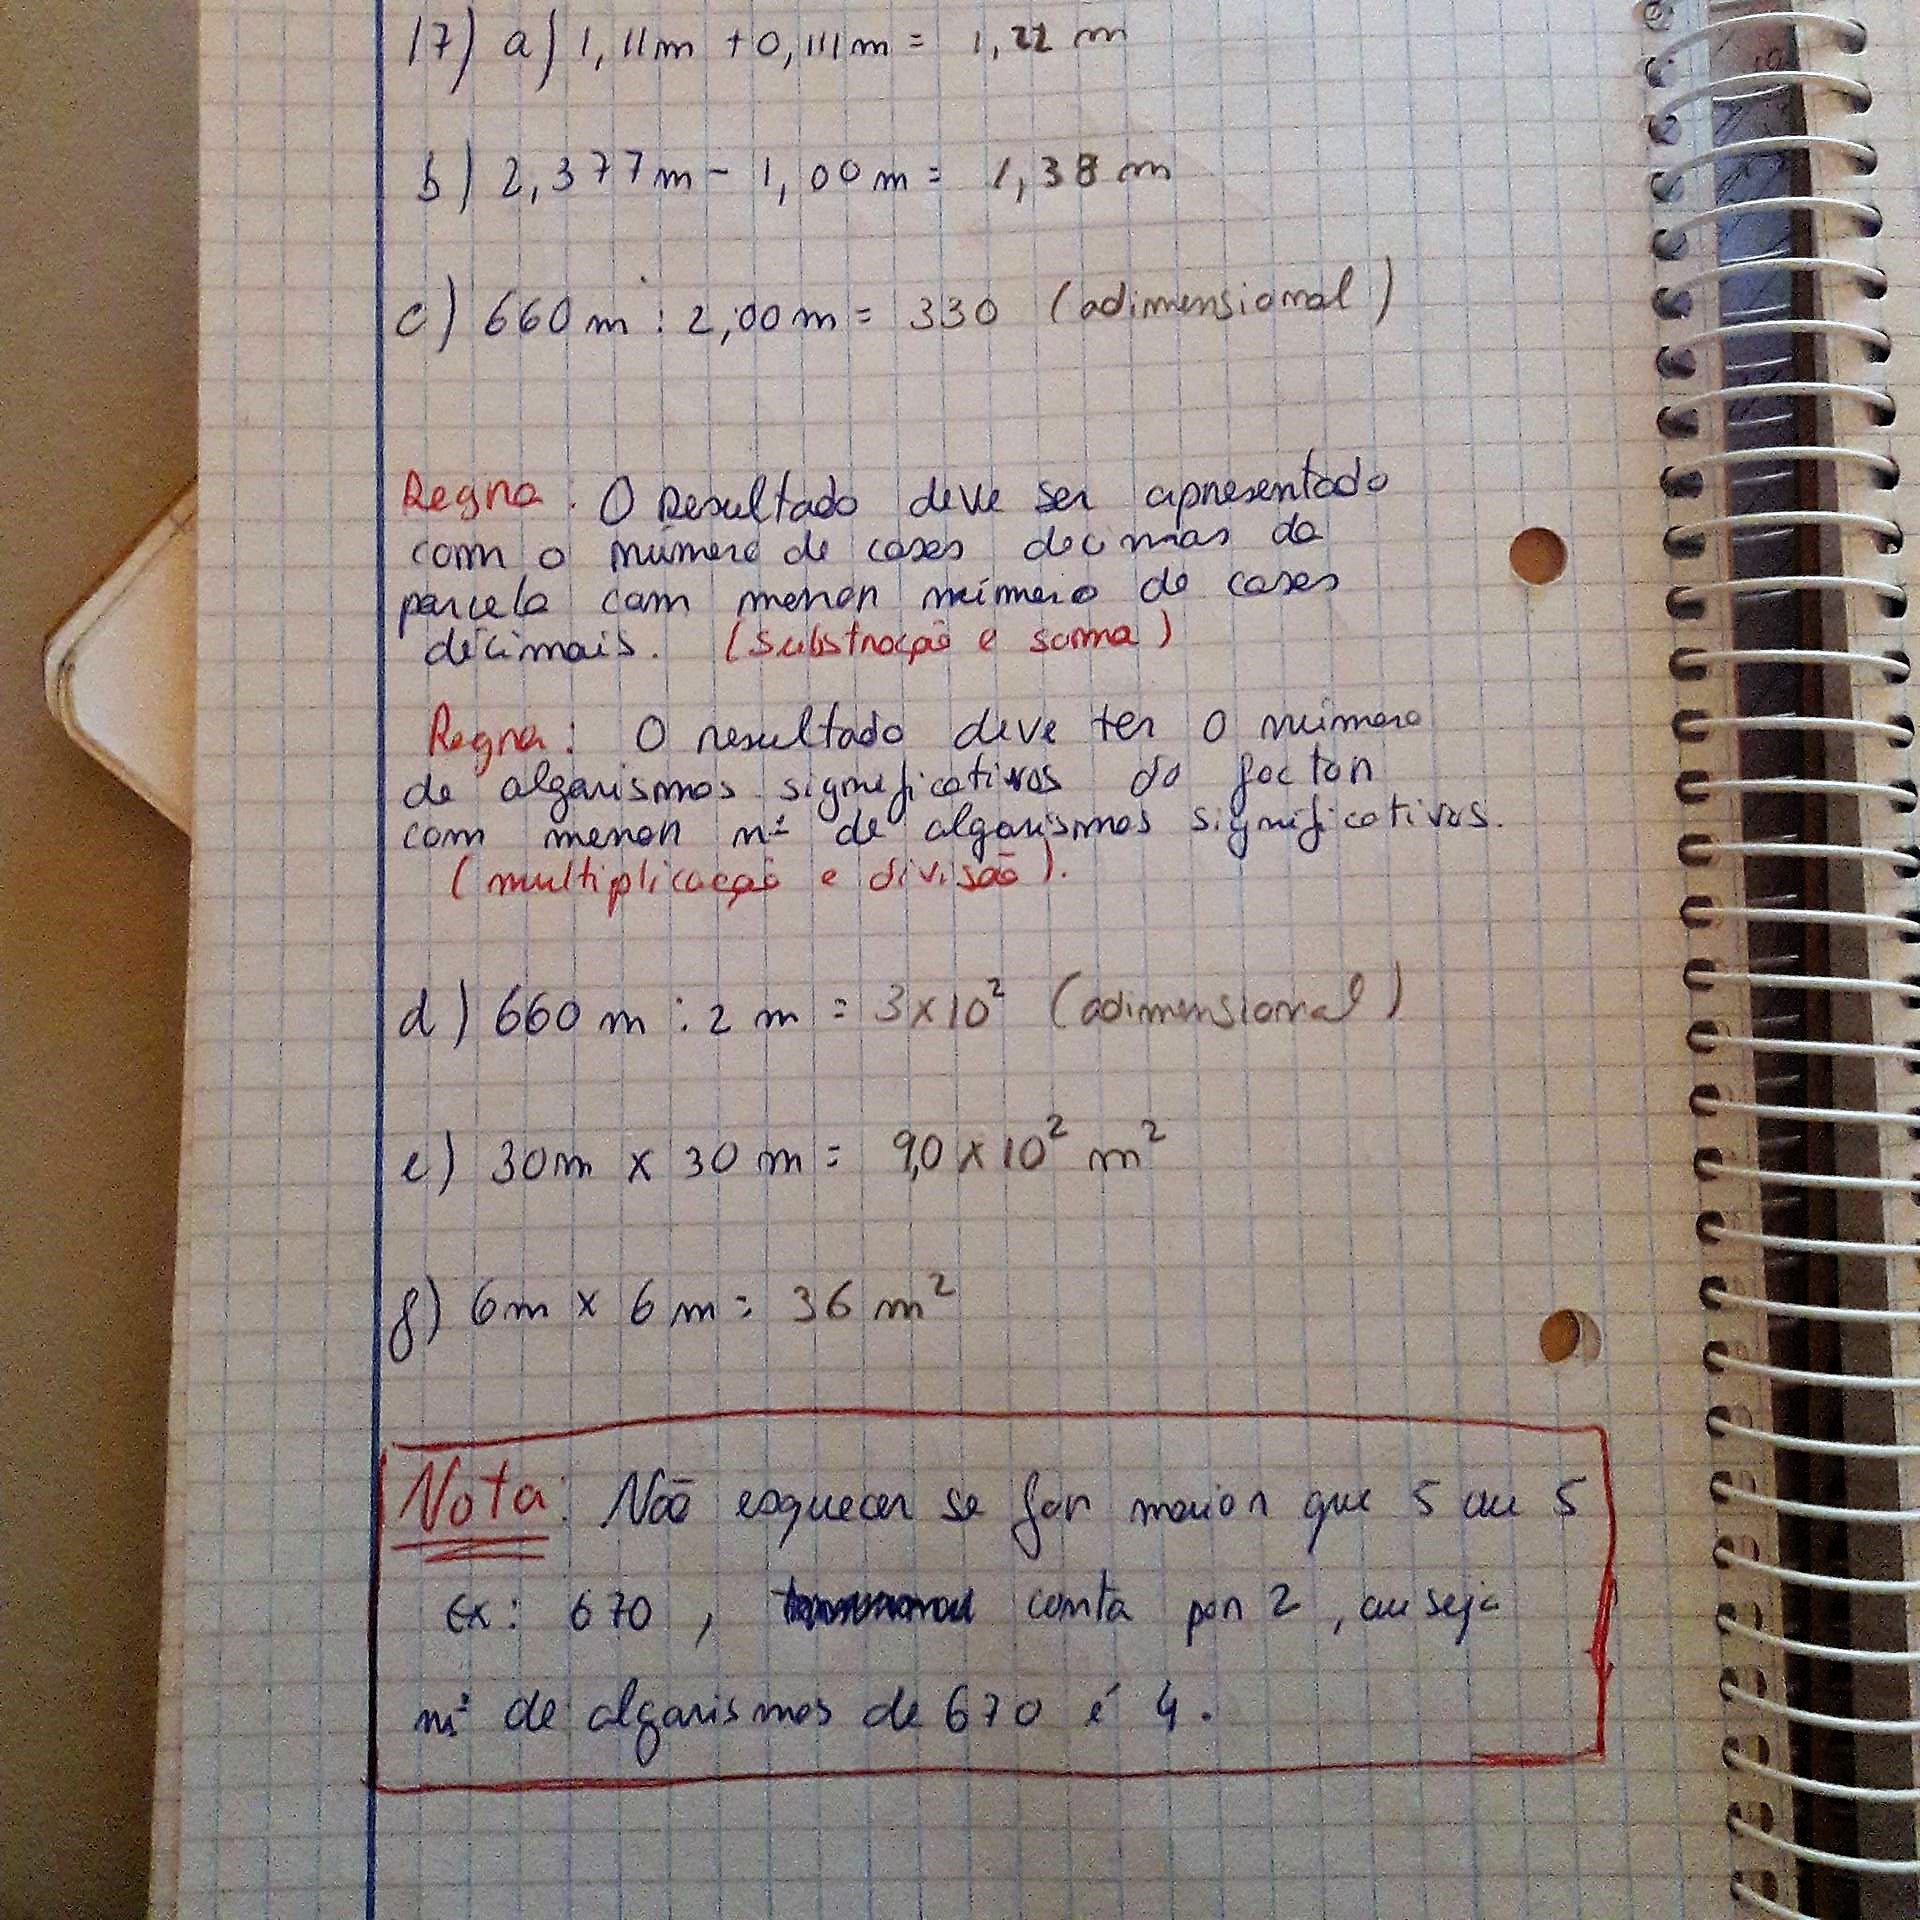 17) a) 1,11m + 0,111m = 1,22 m
b) 2,377m - 1,00m = 1,38 m
c) 660m : 2,00m = 330 (adimensional)
Regra: O resultado deve ser apresentado
com o número de casas decimas da
parcela com menor número de casas
décimais. (substração e soma)
Regra: O resultado deve ter o número
de algarismos significativos do factor
com menor nº de algarismos significativos.
(multiplicação e divisão).
d) 660 m : 2 m = 3x10² (adimensional)
e) 30m x 30 m = 9,0 x 10² m²
f) 6m x 6 m = 36 m²
Nota: Não esquecer se for maior que 5 ou 5
Ex: 670, conta por 2, ou seja
nº de algarismos de 670 é 4.